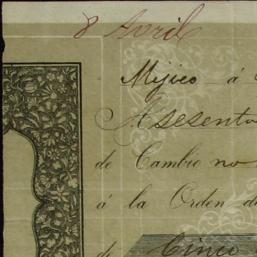 8 Avril
Mejico á
Asesenta
de Cambio no
á la Orden de
de Cinco